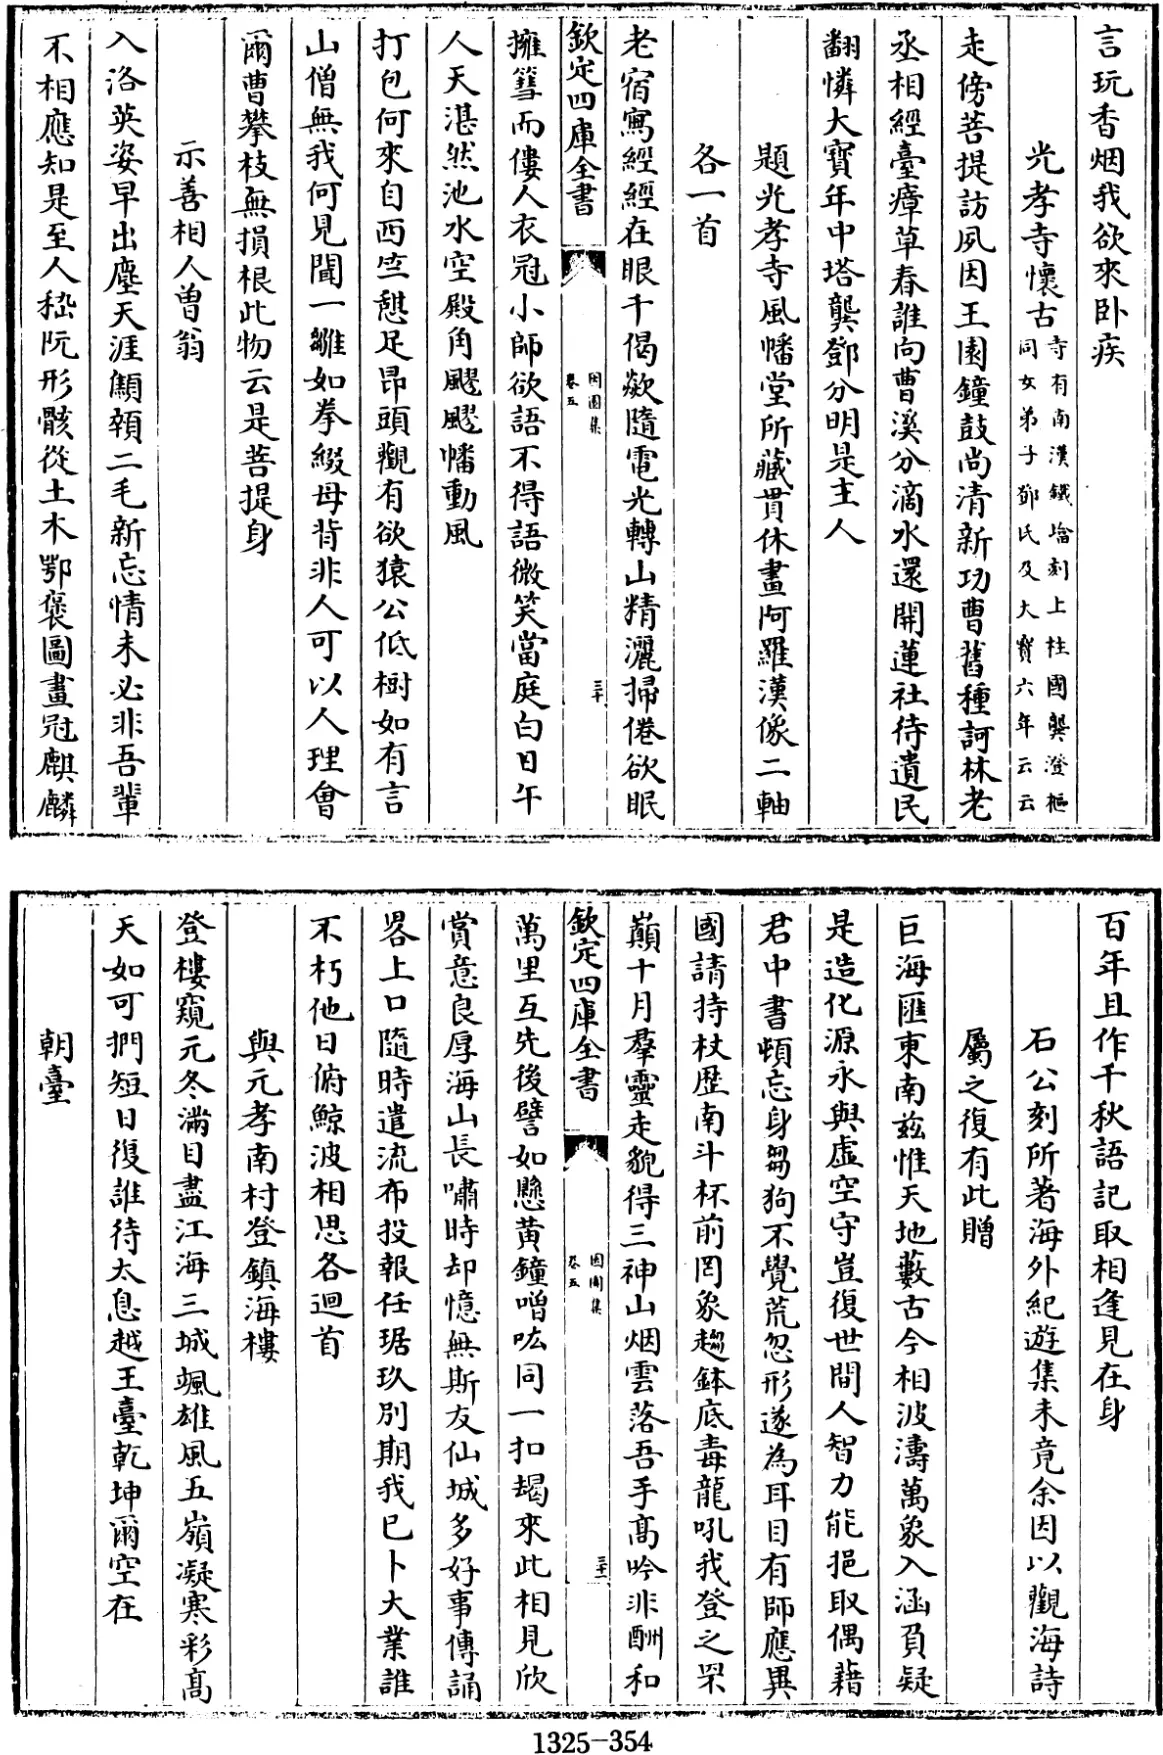 言玩香烟我欲來卧疾
光孝寺懷古寺有南漢鐵塔刻上柱國龔澄樞
同女弟子鄧氏及大寳六年云云
走傍菩提訪夙因王園鐘鼓尚清新功曹舊種訶林老
丞相經臺瘴草春誰向曹溪分滴水還開蓮社待遺民
翻憐大寳年中塔龔鄧分明是主人
題光孝寺風幡堂所藏貫休畫阿羅漢像二軸
各一首
老宿寫經經在眼千偈歘隨電光轉山精灑掃倦欲眠
欽定四庫全書
咽園集
卷五
三十
擁篲而僂人衣冠小師欲語不得語微笑當庭白日午
人天湛然池水空殿角颼颼幡動風
打包何來自西竺憇足昂頭觀有欲猿公低樹如有言
山僧無我何見聞一雛如拳綴母背非人可以人理會
爾曹攀枝無損根此物云是菩提身
示善相人曽翁
入洛英姿早出塵天涯顦顇二毛新忘情未必非吾輩
不相應知是至人嵇阮形骸從土木鄂褒圖畫冠麒麟
百年且作千秋語記取相逢見在身
石公刻所著海外紀遊集未竟余因以觀海詩
屬之復有此贈
巨海匯東南兹惟天地藪古今相波濤萬象入涵負疑
是造化源永與虚空守豈復世間人智力能挹取偶藉
君中書頓忘身芻狗不覺荒忽形遂為耳目有師應異
國請持杖歴南斗杯前罔象趨鉢底毒龍吼我登之罘
巔十月羣靈走貌得三神山烟雲落吾手髙吟非酬和
欽定四庫全書
卷五
三十一
萬里互先後譬如懸黄鐘噌吰同一扣朅來此相見欣
賞意良厚海山長嘯時却憶無斯友仙城多好事傳誦
畧上口隨時遣流布投報任琚玖別期我已卜大業誰
不朽他日俯鯨波相思各迴首
與元孝南村登鎮海樓
登樓窺元冬滿目盡江海三城颯雄風五嶺凝寒彩髙
天如可捫短日復誰待太息越王臺乾坤爾空在
朝臺
1325-354